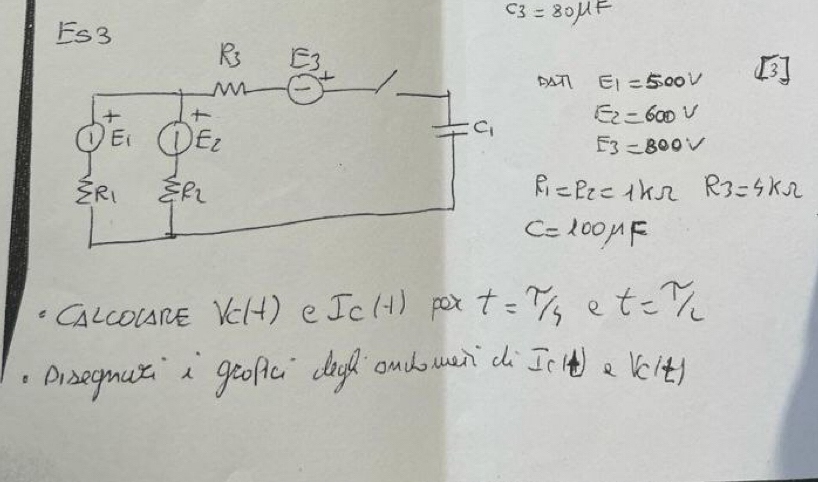 C3 = 80µF
ES3
R3 E3 +
DATI E1 = 500V [3]
E2 = 600 V
E3 = 800V
+ E1 + E2 C1
R1 R2
R1 = R2 = 1kΩ R3 = 4kΩ
C = 100µF
• CALCOLARE Vc(t) e Ic(t) per t = τ/4 e t = τ/2
• Disegnare i grafici degli andamenti di Ic(t) e Vc(t)